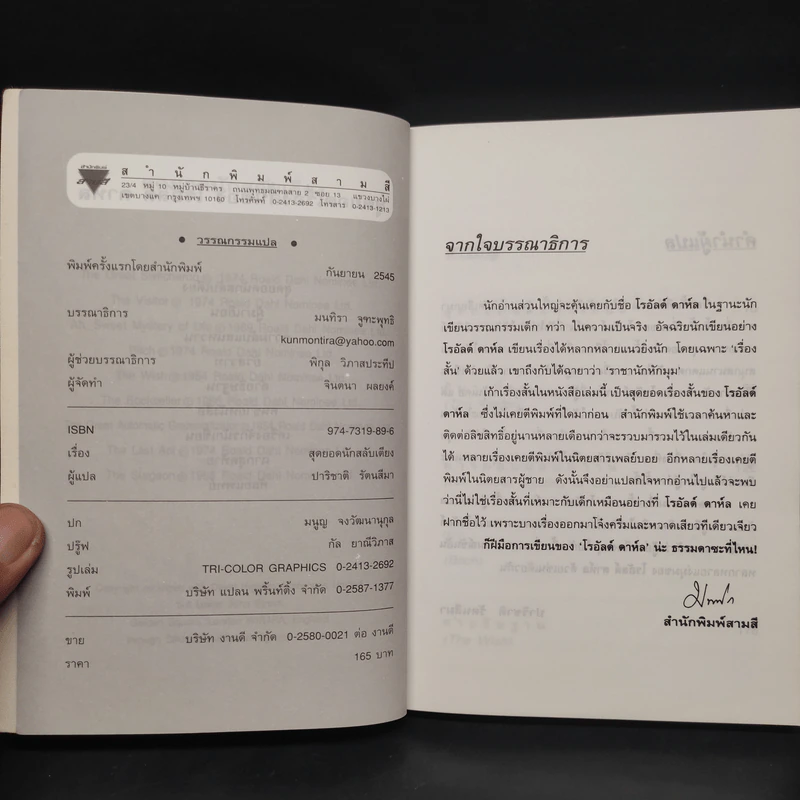 สำนักพิมพ์สามสี
23/4 หมู่ 10 หมู่บ้านธีราคร ถนนพุทธมณฑลสาย 2 ซอย 13 แขวงบางไผ่
เขตบางแค กรุงเทพฯ 10160 โทรศัพท์ 0-2413-2692 โทรสาร 0-2413-1213
• วรรณกรรมแปล •
พิมพ์ครั้งแรกโดยสำนักพิมพ์ กันยายน 2545
บรรณาธิการ มนทิรา จูฑะพุทธิ
kunmontira@yahoo.com
ผู้ช่วยบรรณาธิการ พิกุล วิภาสประทีป
ผู้จัดทำ จินตนา ผลยงค์
ISBN 974-7319-89-6
เรื่อง สุดยอดนักสลับเตียง
ผู้แปล ปาริชาติ รัตนสีมา
ปก มนูญ จงวัฒนานุกูล
ปรู๊ฟ กัล ยาณีวิภาส
รูปเล่ม TRI-COLOR GRAPHICS 0-2413-2692
พิมพ์ บริษัท แปลน พริ้นท์ติ้ง จำกัด 0-2587-1377
ขาย บริษัท งานดี จำกัด 0-2580-0021 ต่อ งานดี
ราคา 165 บาท
จากใจบรรณาธิการ
นักอ่านส่วนใหญ่จะคุ้นเคยกับชื่อ โรอัลด์ ดาห์ล ในฐานะนัก
เขียนวรรณกรรมเด็ก ทว่า ในความเป็นจริง อัจฉริยนักเขียนอย่าง
โรอัลด์ ดาห์ล เขียนเรื่องได้หลากหลายแนวยิ่งนัก โดยเฉพาะ ‘เรื่อง
สั้น’ ด้วยแล้ว เขาถึงกับได้ฉายาว่า ‘ราชานักหักมุม’
เก้าเรื่องสั้นในหนังสือเล่มนี้ เป็นสุดยอดเรื่องสั้นของ โรอัลด์
ดาห์ล ซึ่งไม่เคยตีพิมพ์ที่ใดมาก่อน สำนักพิมพ์ใช้เวลาค้นหาและ
ติดต่อลิขสิทธิ์อยู่นานหลายเดือนกว่าจะรวบมารวมไว้ในเล่มเดียวกัน
ได้ หลายเรื่องเคยตีพิมพ์ในนิตยสารเพลย์บอย อีกหลายเรื่องเคยตี
พิมพ์ในนิตยสารผู้ชาย ดังนั้นจึงอย่าแปลกใจหากอ่านไปแล้วจะพบ
ว่านี่ไม่ใช่เรื่องสั้นที่เหมาะกับเด็กเหมือนอย่างที่ โรอัลด์ ดาห์ล เคย
ฝากชื่อไว้ เพราะบางเรื่องออกมาโจ๋งครึ่มและหวาดเสียวทีเดียวเจียว
ก็ฝีมือการเขียนของ ‘โรอัลด์ ดาห์ล’ น่ะ ธรรมดาซะที่ไหน!
สำนักพิมพ์สามสี